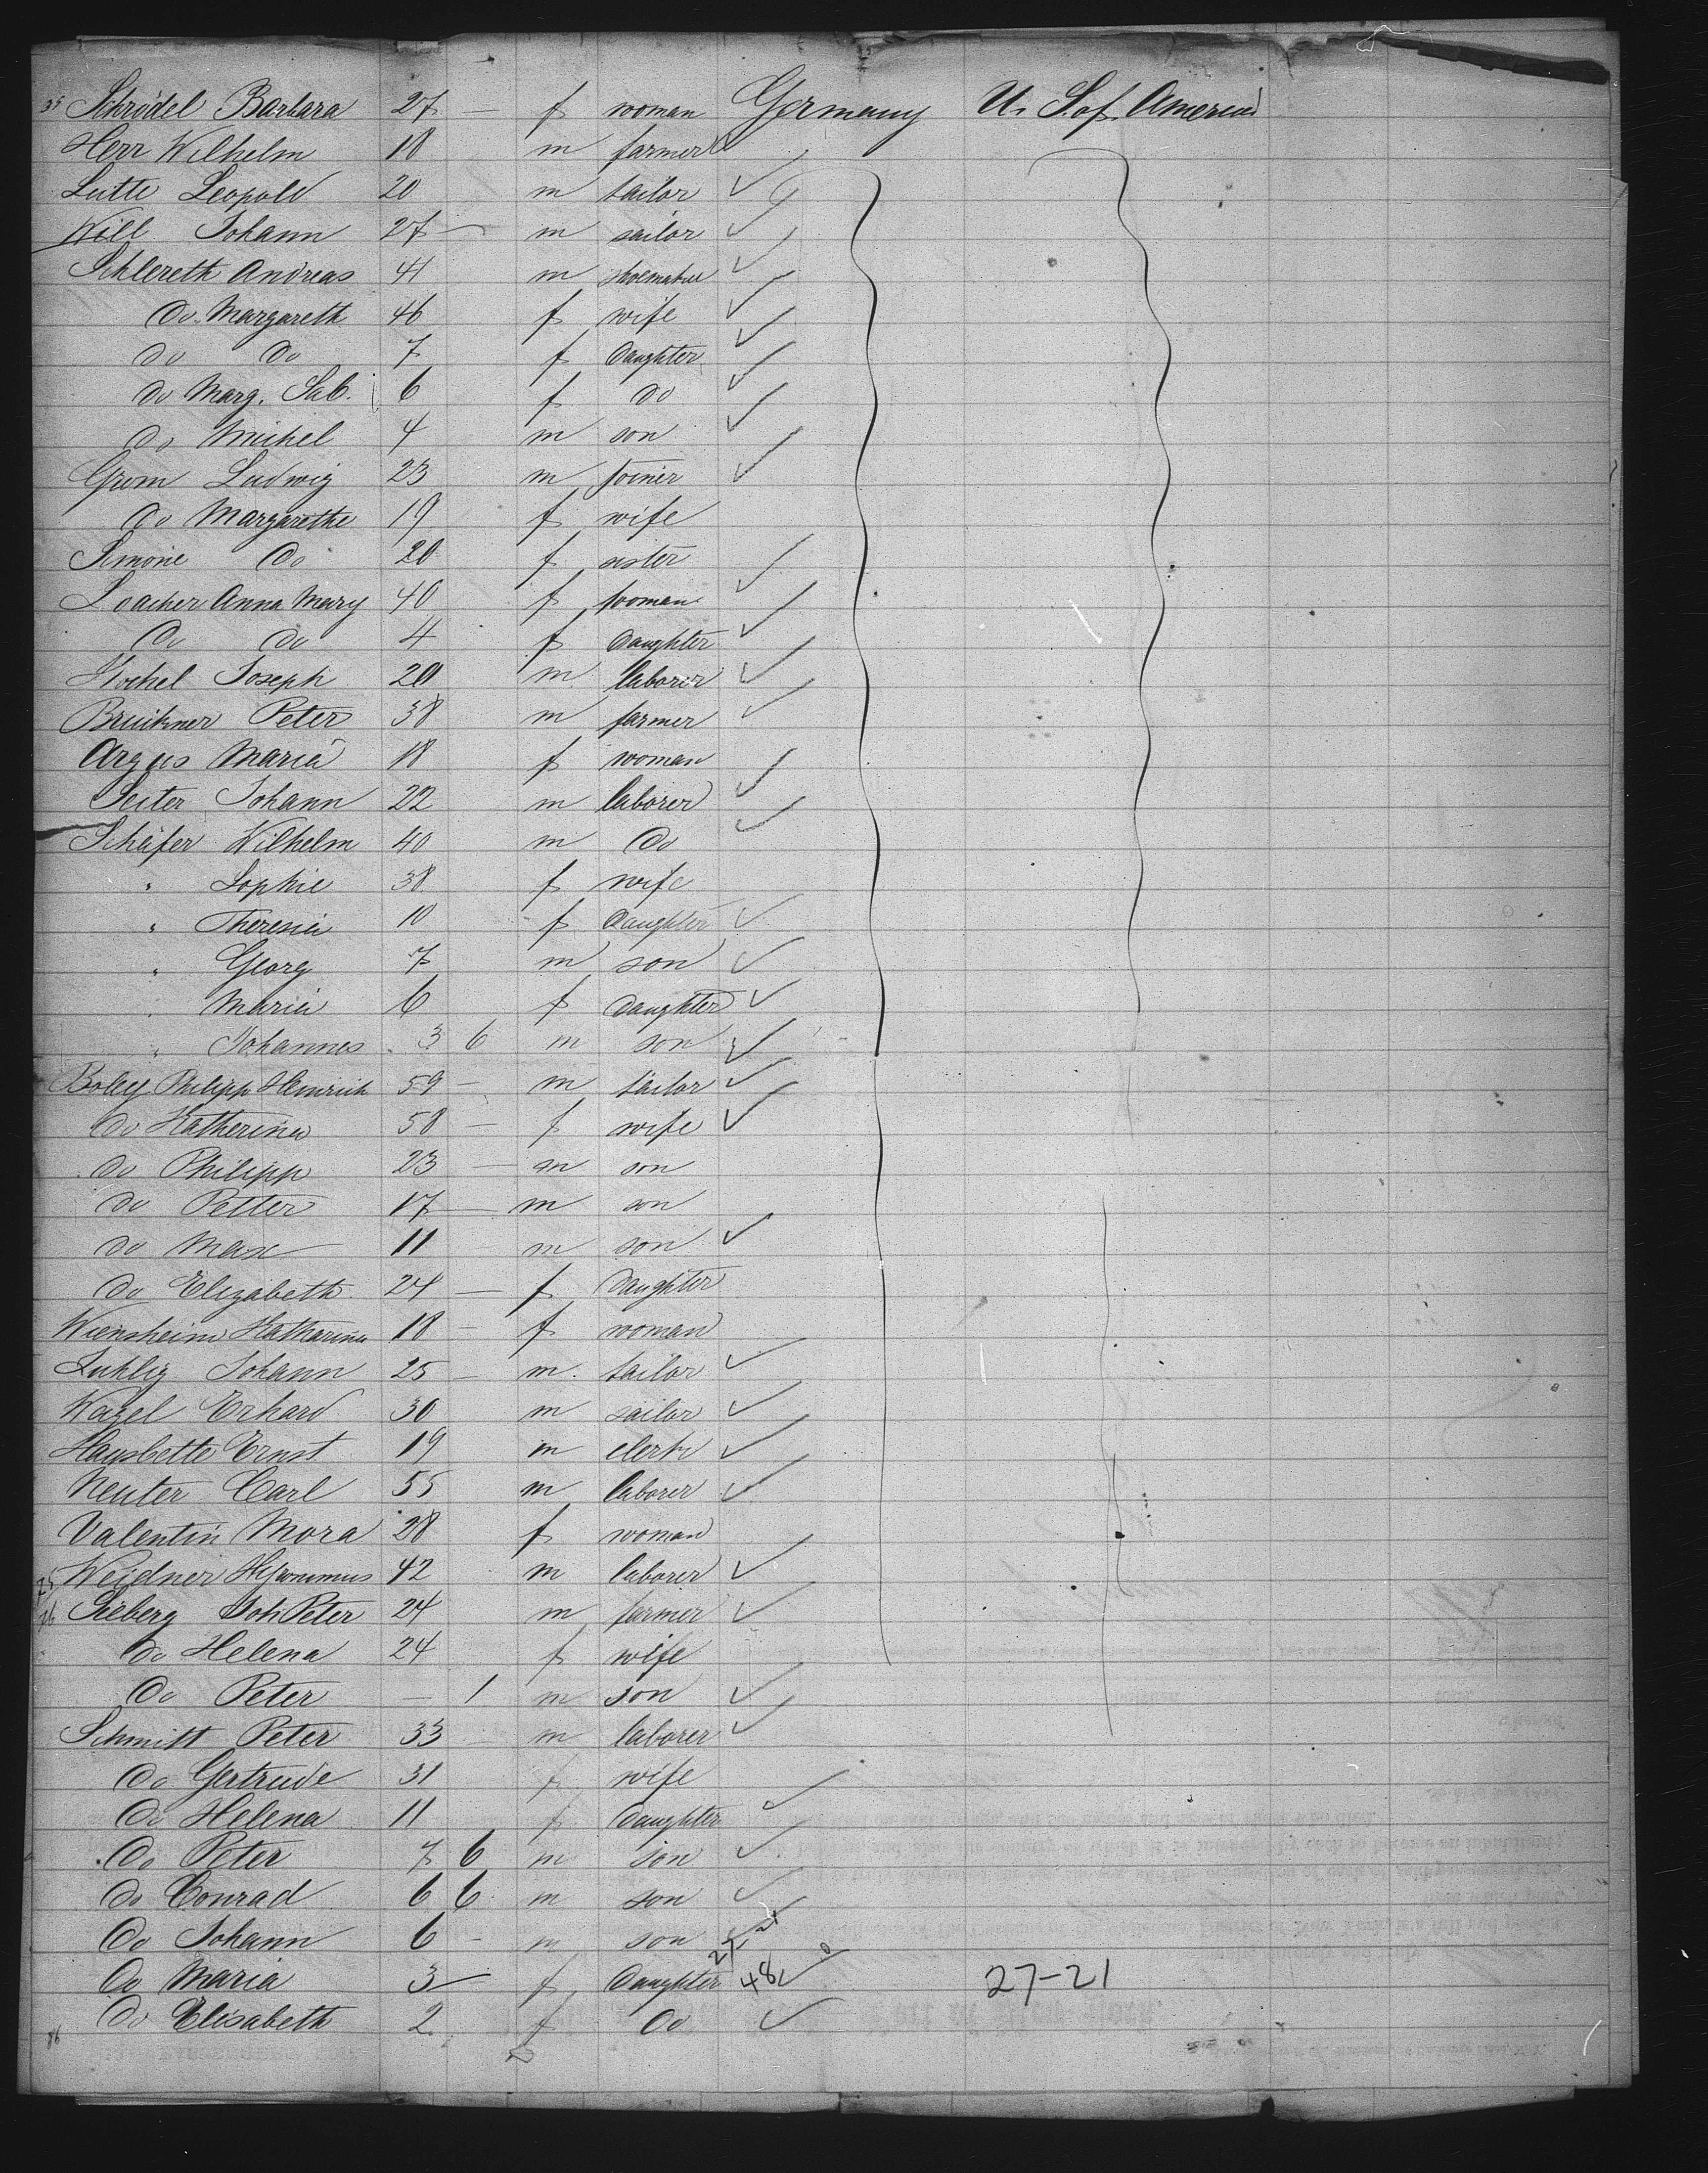 Schrödel Barbara 27 — f woman Germany U. S. of America
Herr Wilhelm 18 m farmer
Lutte Leopold 20 m tailor
Will Johann 27 — m sailor
Schlereth Andreas 41 m shoemaker
do Margareth 46 f wife
do do 7 f daughter
do Marg. Sab. 6 f do
do Michel 4 m son
Grom Ludwig 23 m joiner
do Margarethe 19 f wife
Simone do 20 f sister
Loacher Anna Mary 40 f woman
do do 4 f daughter
Hochel Joseph 20 m laborer
Bruckner Peter 38 m farmer
Argus Maria 18 f woman
Seiter Johann 22 m laborer
Schäfer Wilhelm 40 m do
" Sophie 38 f wife
" Theresia 10 f daughter
" Georg 7 m son
" Maria 6 f daughter
" Johannes 3 6 m son
Boley Philipp Heinrich 59 — m tailor
do Katherina 58 — f wife
do Philipp 23 — m son
do Petter 17 — m son
do Max 11 m son
do Elizabeth 24 — f daughter
Wiensheim Katharina 18 — f woman
Johann 25 — m. tailor
Wazel Erhard 30 m sailor
Ernst 19 m clerk
Neuter Carl 55 m laborer
Valentin Mora 28 f woman
25 Weidner Hyronimus 42 m laborer
26 Sieberg Joh Peter 24 m farmer
do Helena 24 f wife
do Peter — 1 m son
Schmitt Peter 33 m laborer
do Gertrude 31 f wife
do Helena 11 f daughter
do Peter 7 6 m son
do Conrad 6 6 m son
do Johann 6 - m son 27 21
do Maria 3 — f daughter 48 27-21
do Elisabeth 2 f do